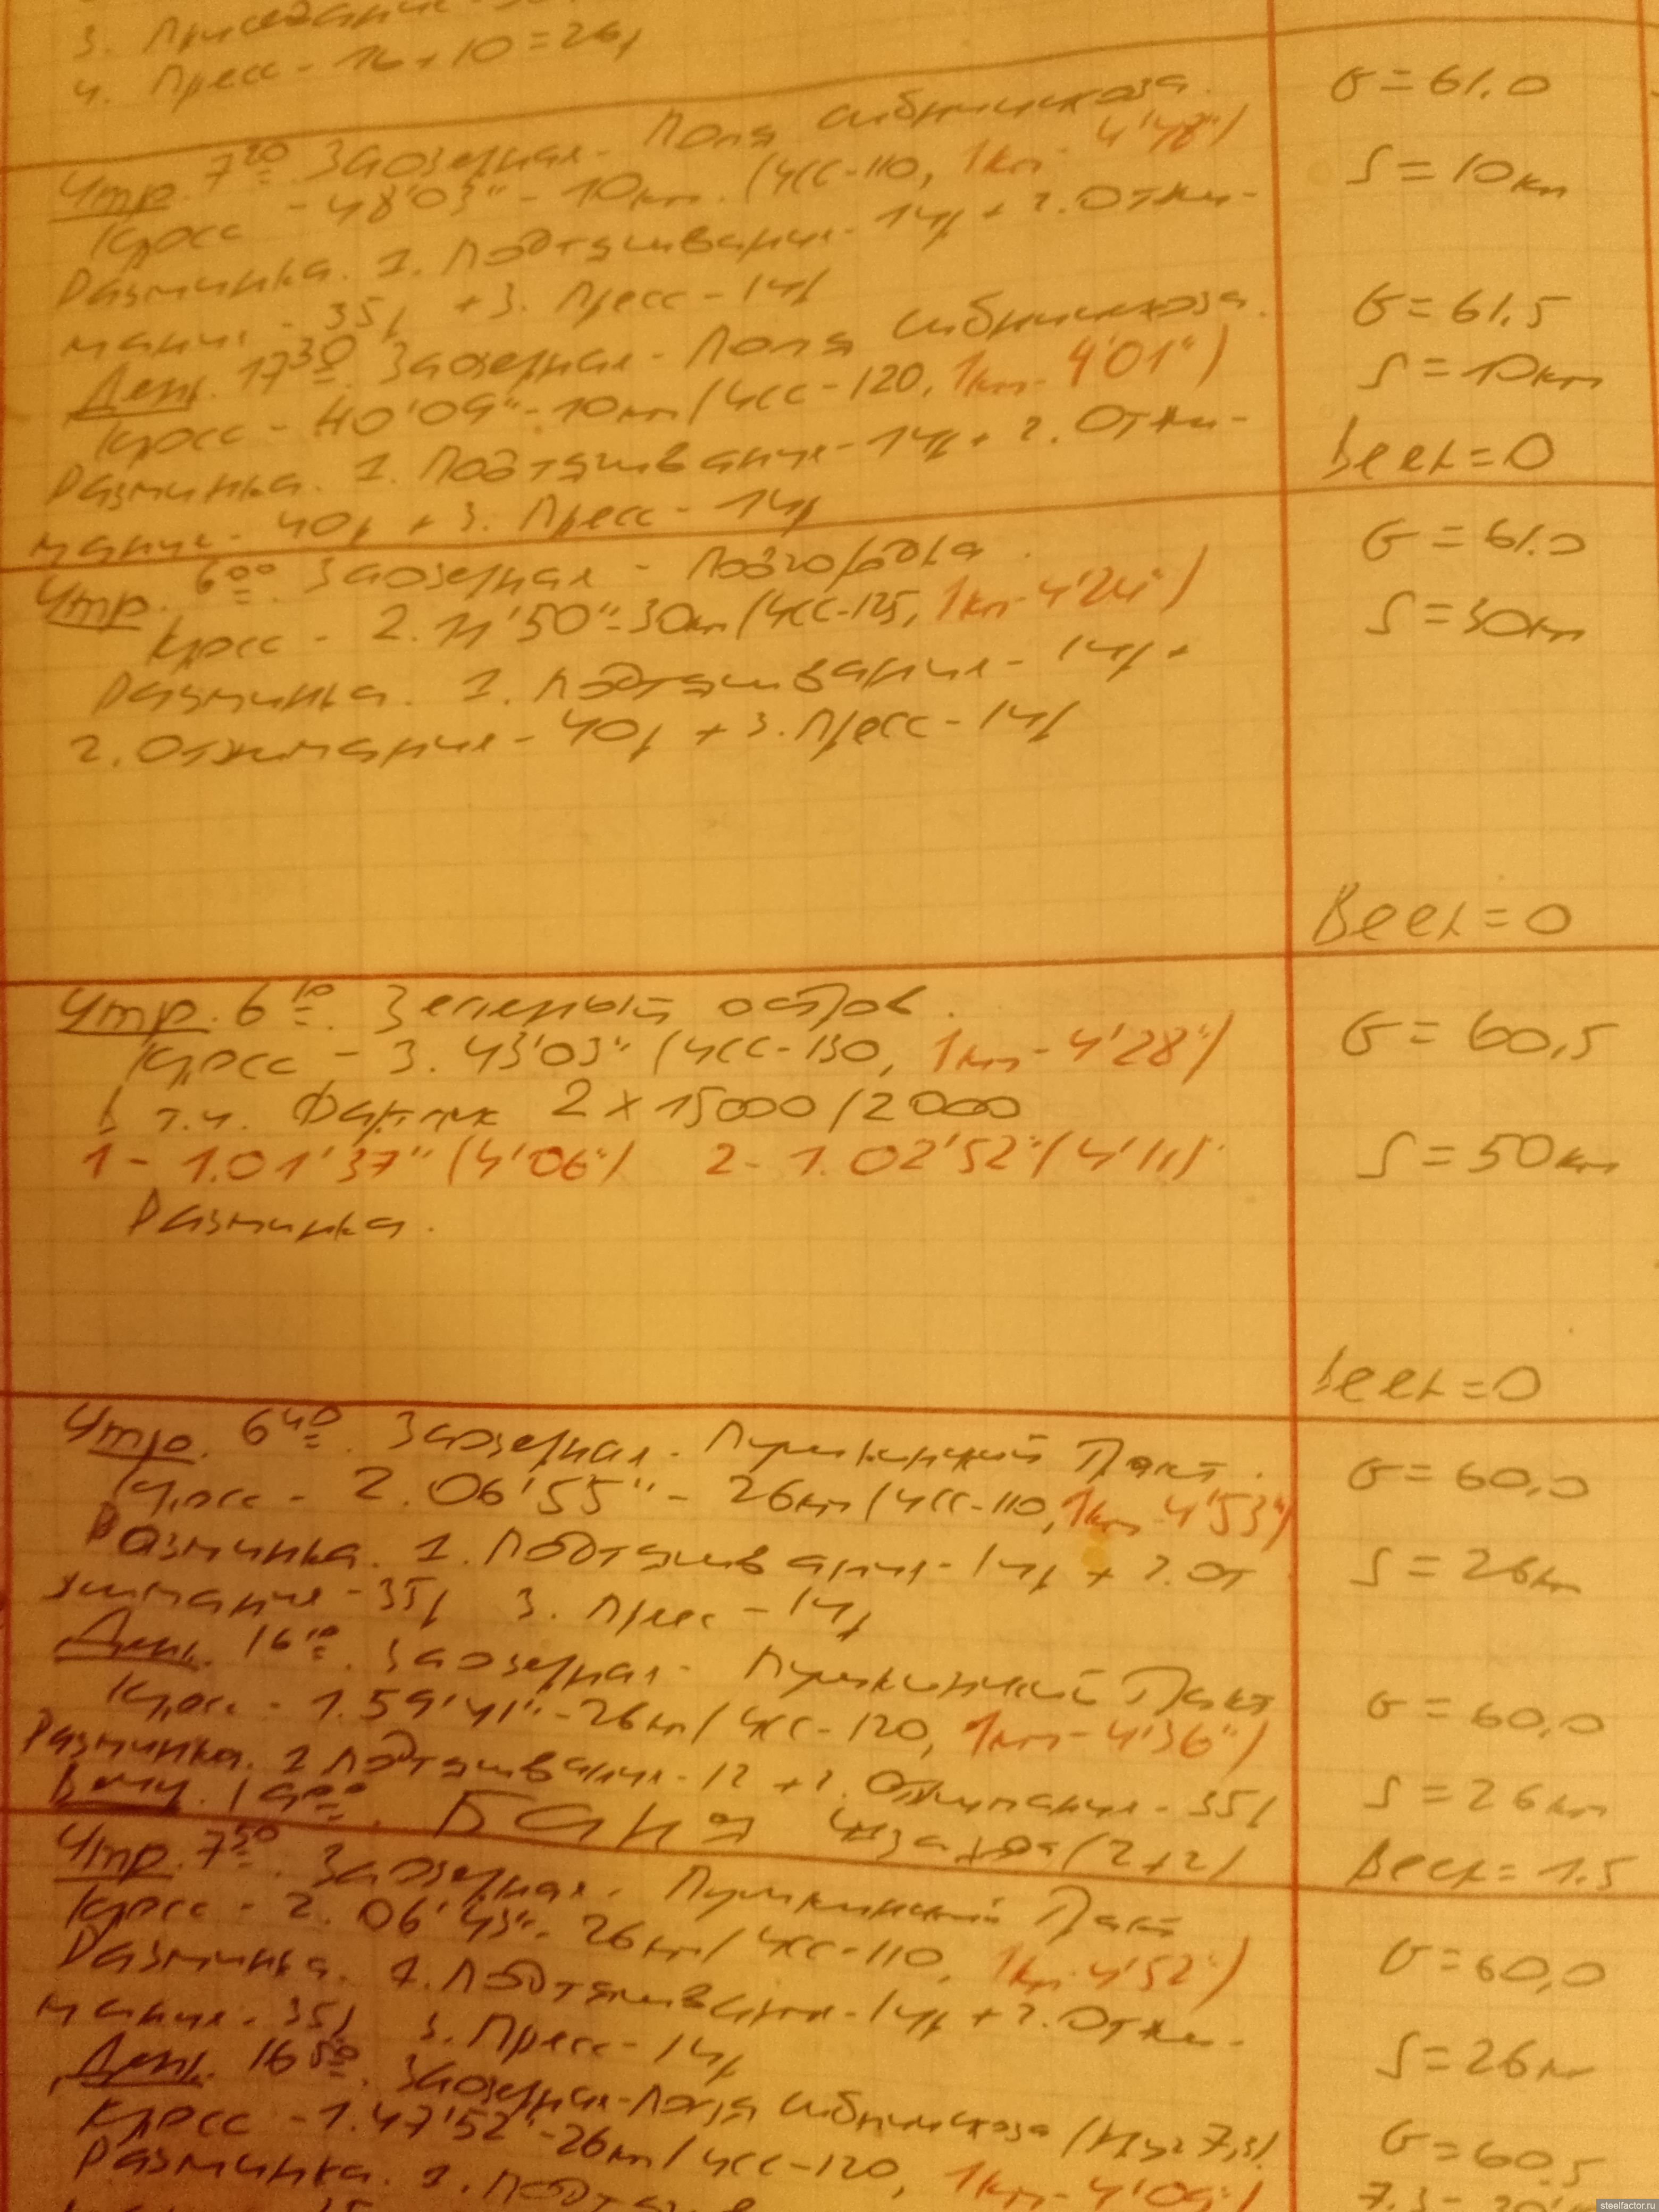 3. Приседания
4. Пресс - 16+10=26р
Утр. 7²⁰. Заозерная - Поля сибниисхоза.
G=61.0
Кросс - 48'03" - 10км. (ЧСС-110, 1км - 4'48")
S=10км
Разминка. 1. Подтягивания - 14р + 2. Отжи-
мания - 35р + 3. Пресс - 14р
День. 17³⁰. Заозерная - Поля сибниисхоза.
G=61.5
Кросс - 40'09" - 10км (ЧСС-120, 1км - 4'01")
S=10км
Разминка. 1. Подтягивания - 14р + 2. Отжи-
мания - 40р + 3. Пресс - 14р
Весх=0
Утр. 6⁰⁰. Заозерная - Подгородка.
G=61.0
Кросс - 2.11'50" - 30км (ЧСС-125, 1км - 4'24")
S=30км
Разминка. 1. Подтягивания - 14р +
2. Отжимания - 40р + 3. Пресс - 14р
Весх=0
Утр. 6¹⁰. Зеленый остров.
G=60,5
Кросс - 3.43'03" (ЧСС-130, 1км - 4'28")
В т.ч. Фартлек 2x15000/2000
1 - 1.01'37" (4'06") 2 - 1.02'52" (4'11")
S=50км
Разминка.
Весх=0
Утр. 6⁴⁰. Заозерная - Пушкинский Тракт.
G=60,0
Кросс - 2.06'55" - 26км (ЧСС-110, 1км - 4'53")
Разминка. 1. Подтягивания - 14р + 2. От
S=26км
жимания - 35р 3. Пресс - 14р
День. 16¹⁰. Заозерная - Пушкинский Тракт
G=60,0
Кросс - 1.59'41" - 26км (ЧСС-120, 1км - 4'36")
Разминка. 1 Подтягивания - 12 + 2. Отжимания - 35р
S=26км
Веч. 19⁰⁰. Баня 4 захода (2+2)
Весх=1.5
Утр. 7⁵⁰. Заозерная - Пушкинский Тракт
Кросс - 2.06'43" - 26км (ЧСС-110, 1км - 4'52")
G=60,0
Разминка. 1. Подтягивания - 14р + 2. Отжи-
мания - 35р 3. Пресс - 14р
S=26км
День. 16⁵⁰. Заозерная - Поля сибниисхоза
Кросс - 1.47'52" - 26км (ЧСС-120, 1км - 4'09")
G=60.5
Разминка. 1.
steelfactor.ru